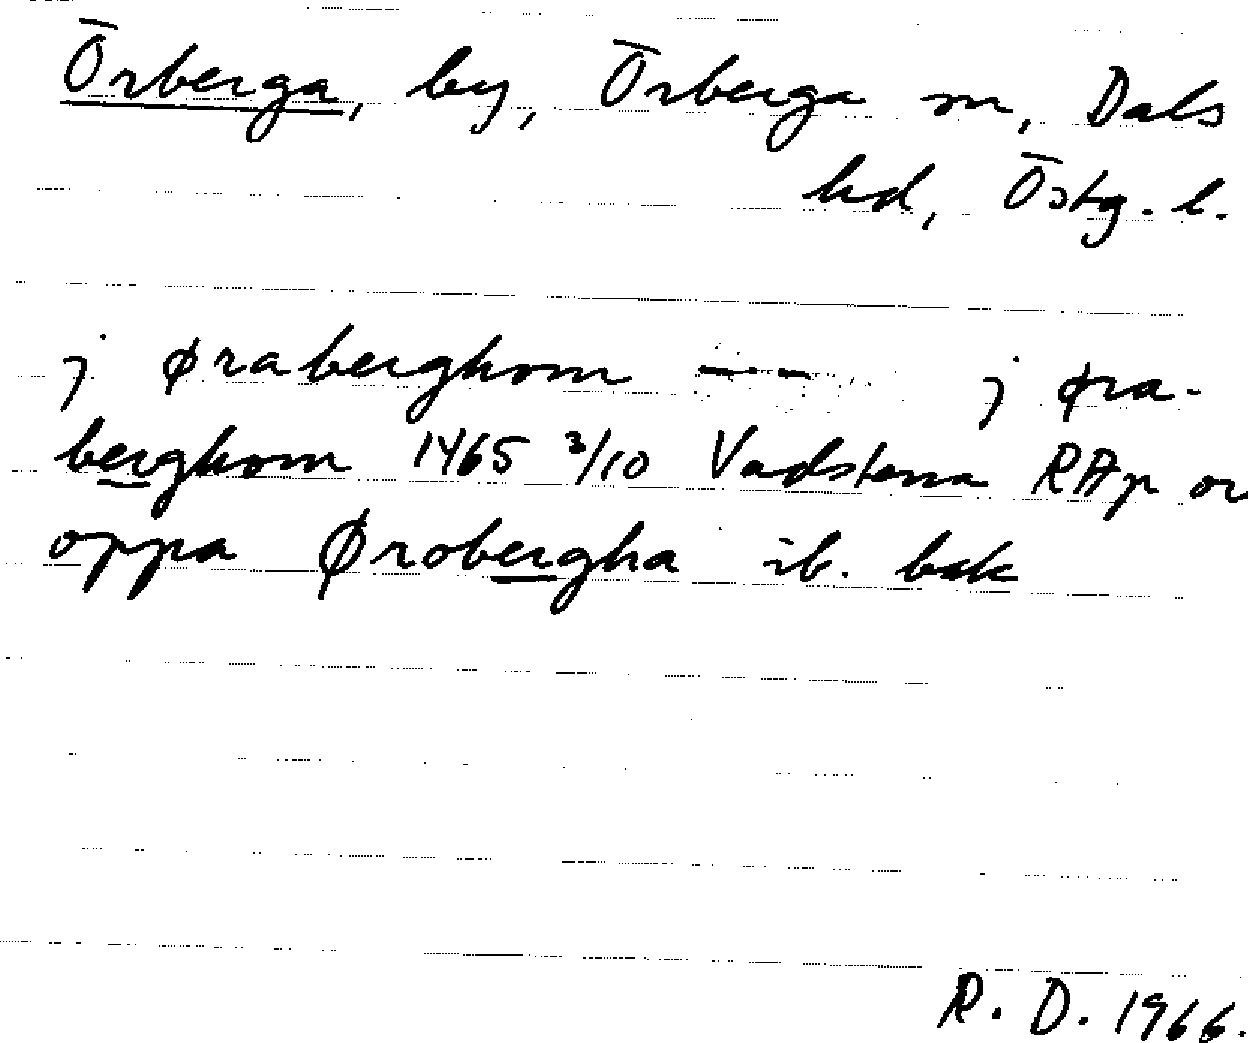 Örberga, by, Örberga sn, Dals
hd, Östg. l.
j øraberghom — – j øra-
berghom 1465 3/10 Vadstena RAp or
oppa Ørobergha ib. bak
R. D. 1966.